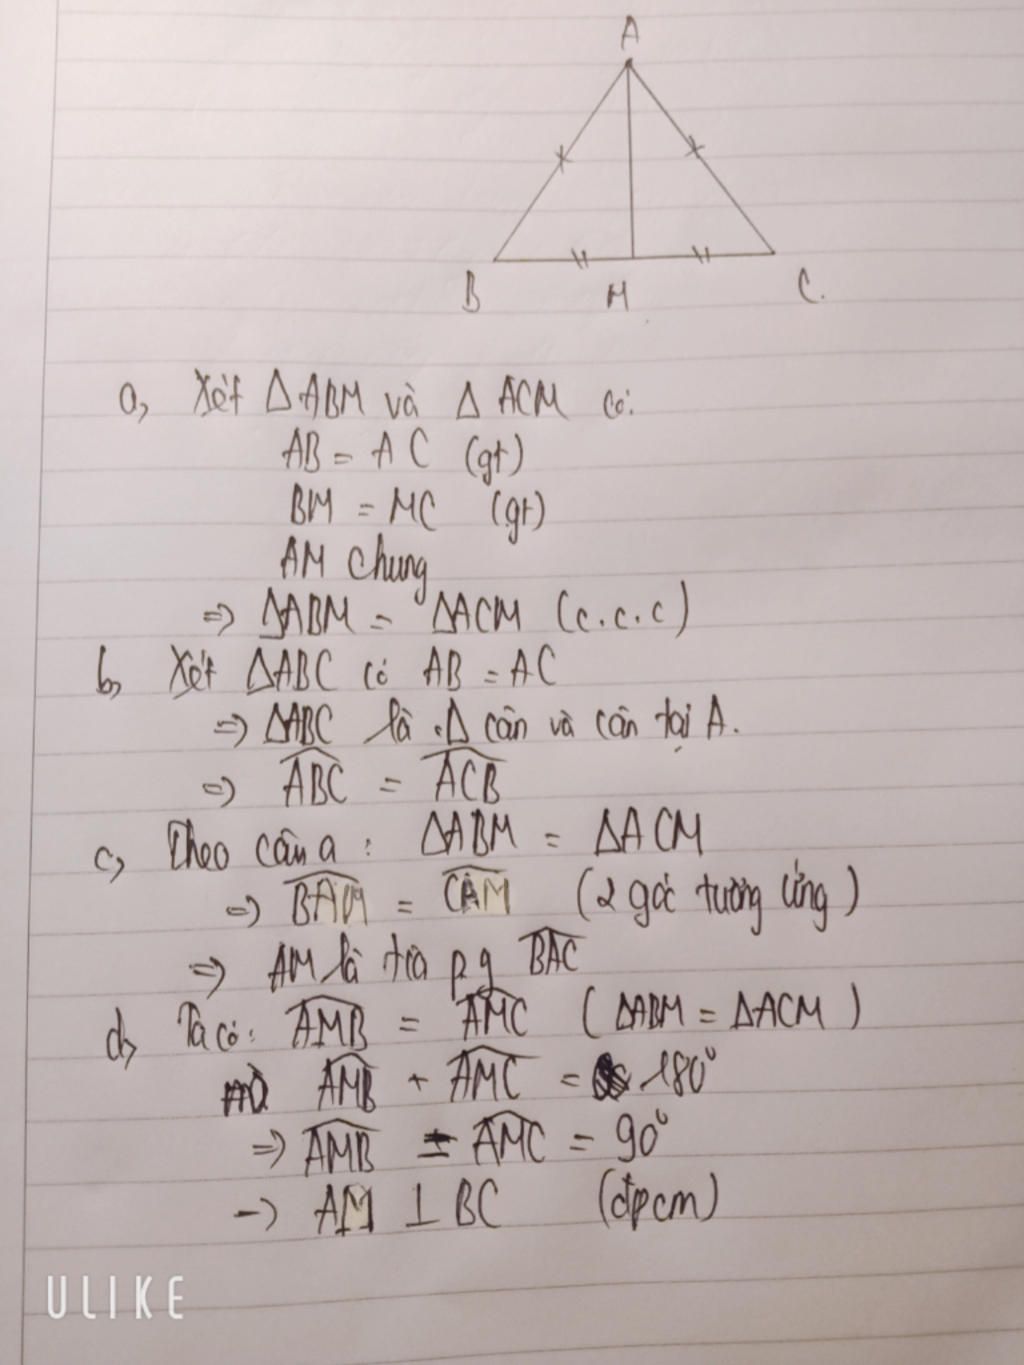 A
B
M
C.
a, Xét ΔABM và ΔACM có:
AB = AC (gt)
BM = MC (gt)
AM chung
=> ΔABM = ΔACM (c.c.c)
b, Xét ΔABC có AB = AC
=> ΔABC là Δ cân và cân tại A.
=> \widehat{ABC} = \widehat{ACB}
c, Theo câu a: ΔABM = ΔACM
=> \widehat{BAM} = \widehat{CAM} (2 góc tương ứng)
=> AM là tia p.g \widehat{BAC}
d, Ta có: \widehat{AMB} = \widehat{AMC} (ΔABM = ΔACM)
mà \widehat{AMB} + \widehat{AMC} = 180°
=> \widehat{AMB} = \widehat{AMC} = 90°
-> AM ⊥ BC (đpcm)
ULIKE